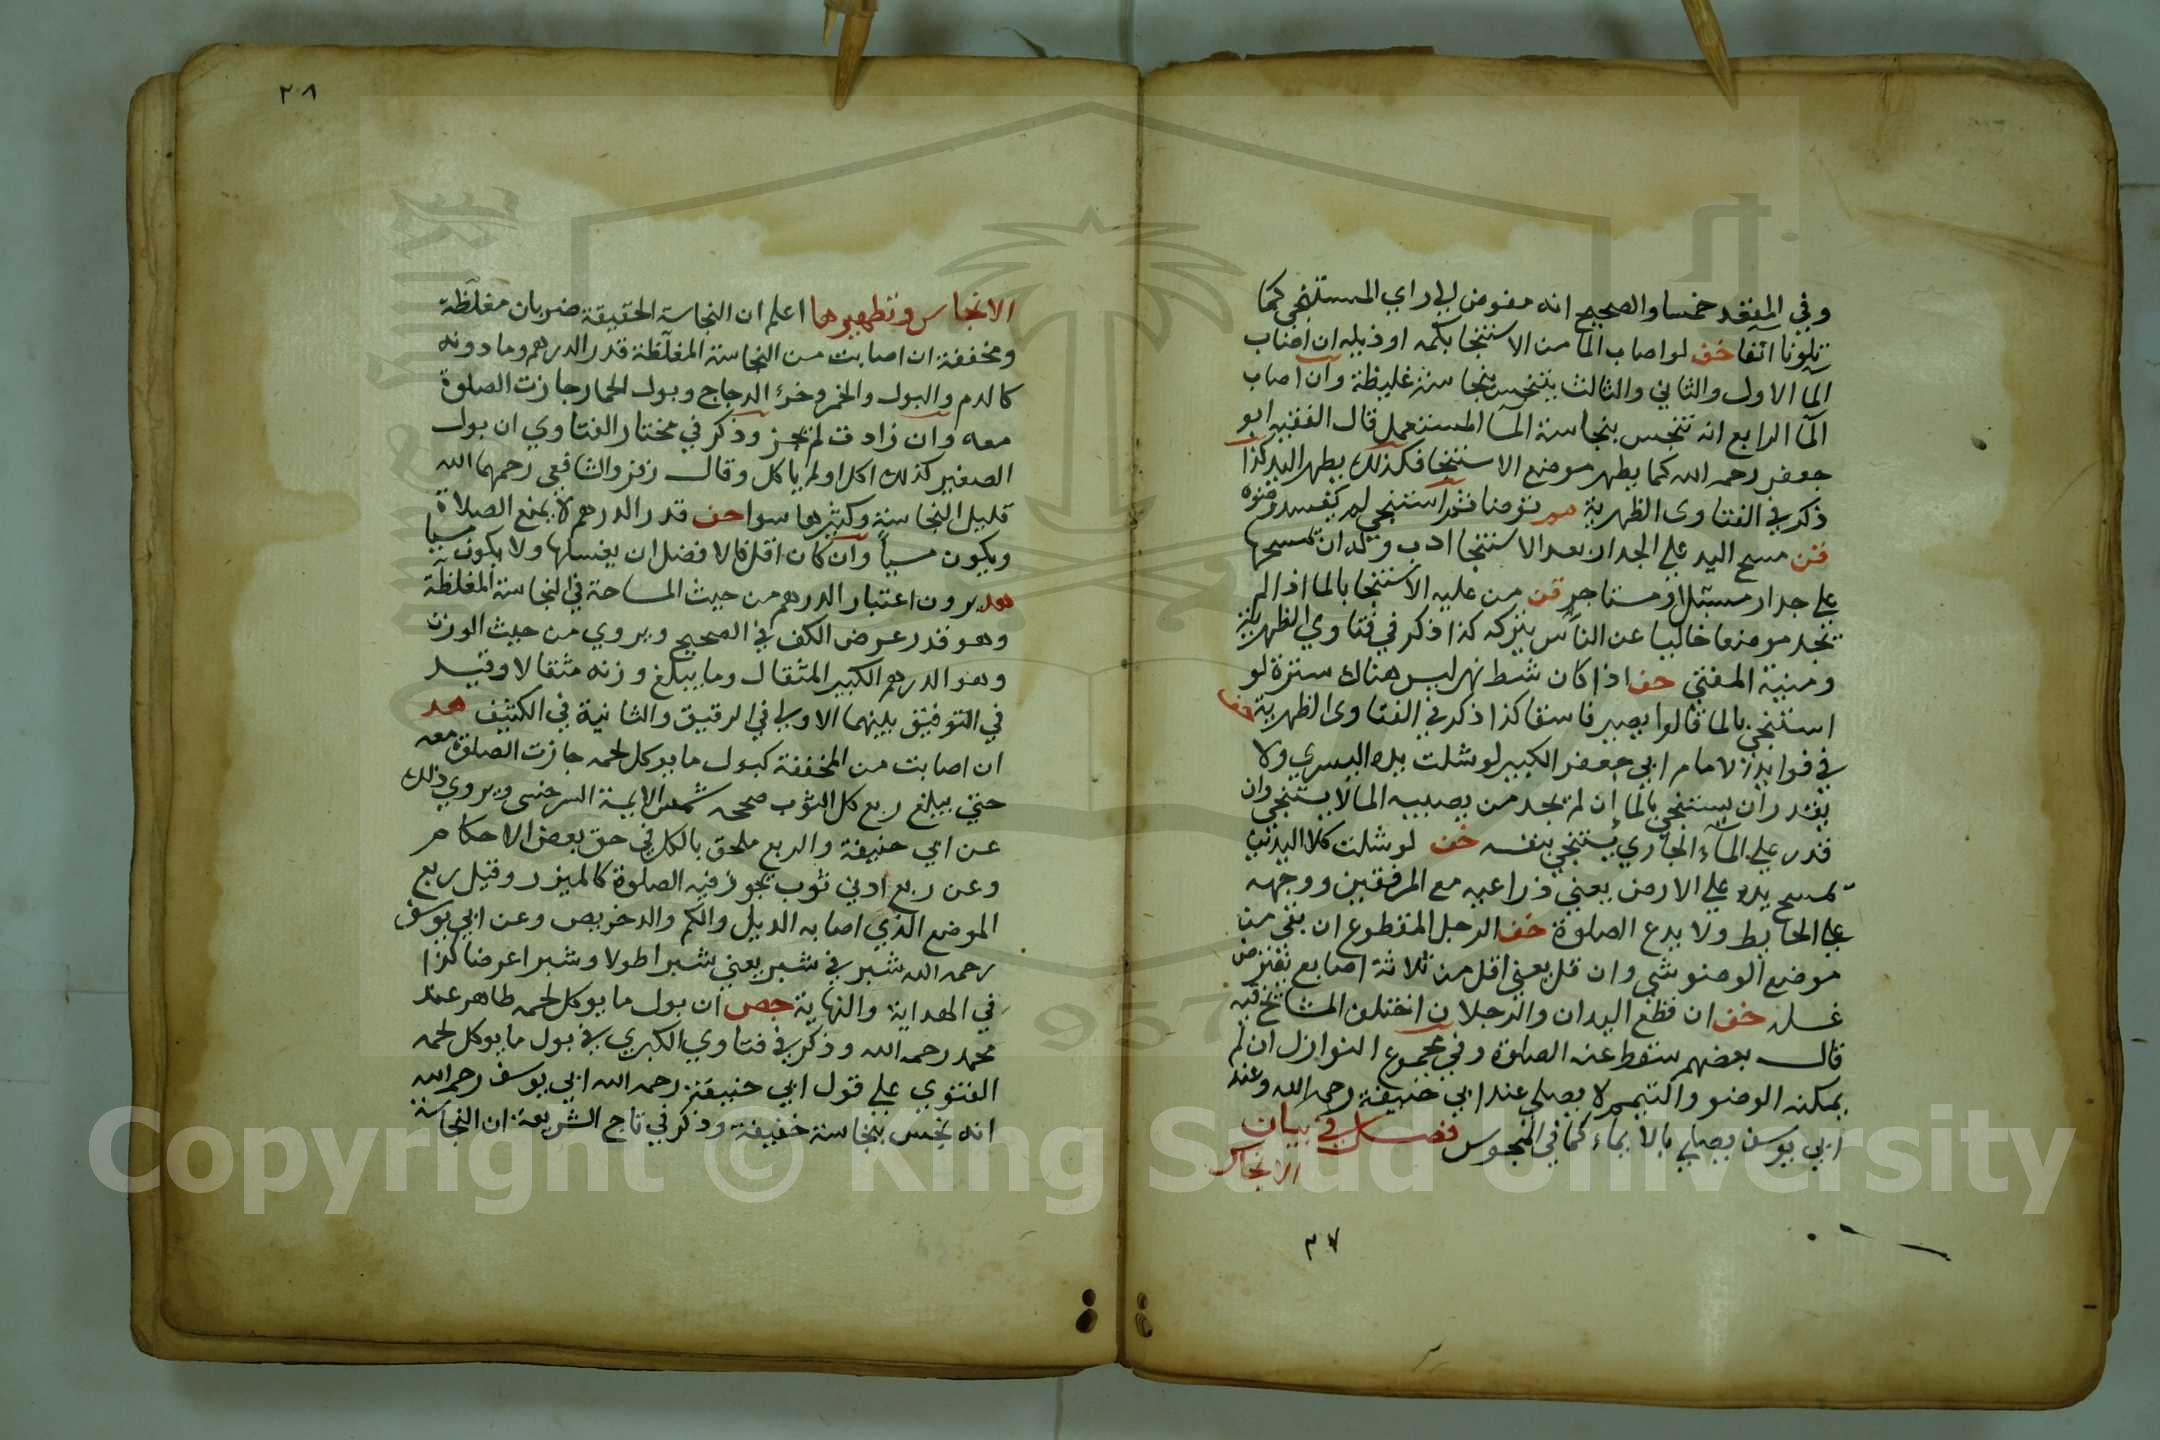 وفي المقعد خمسا والصحيح انه مفوض الي راي المستنجي كما
تلونا انفا خف لو اصاب الما من الاستنجا بكمه او ذيله ان اصاب
الما الاول والثاني والثالث يتنجس بنجاسة غليظة وان اصاب
المآ الرابع انه تنجس بنجاسة المآ المستعمل قال الفقيه ابو
جعفر رحمه الله كما يطهر موضع الاستنجا فكذلك يطهر اليد كذا
ذكر في الفتاوى الظهرية توضا ثم استنجي لم يفسد وضوه
قن مسح اليد علي الجدار بعد الاستنجا ادب وكذا ان تمسحها
علي جدار مسبل او مستاجر قن من عليه الاستنجا بالما اذا لم
تجد موضعا خاليا عن الناس يتركه كذا ذكر في فتاوي الظهرية
ومنية المفتي حف اذا كان شط نهر ليس هناك سترة لو
استنجي بالما قالوا يصير فاسقا كذا ذكر في الفتاوى الظهرية
في فوايد الامام ابي حفص الكبير لو شلت يده اليسري ولا
يقدر ان يستنجي بالماء ان لم يجد من يصب الما لا يستنجي وان
قدر علي المآء الجاري يستنجي بنفسه خف لو شلت كلا اليدين
تمسح يده علي الارض يعني ذراعيه مع المرفقين ووجهه
علي الحايط ولا يدع الصلوة خف الرجل المقطوع ان بقي من
موضع الوضو شي وان قل يعني اقل من ثلاثة اصابع يفترض
غسله خف ان قطع اليدان والرجلان اختلف المشائخ فيه
قال بعضهم سقط عنه الصلوة وفي مجموع النوازل ان لم
يمكنه الوضو والتيمم لا يصلي عند ابي حنيفة رحمه الله وعند
ابي يوسف يصلي بالايماء كما في المحبوس فصل في بيان
الانجاس
٣٧
٢٨
الانجاس وتطهيرها اعلم ان النجاسة الحقيقة ضربان مغلظة
ومخففة ان اصابت من النجاسة المغلظة قدر الدرهم وما دونه
كالدم والبول والخمر وخرء الدجاج وبول الحمار جازت الصلوة
معه وان زادت لم تجز وذكر في مختار الفتاوي ان بول
الصغير كذلك اكل او لم ياكل وقال زفر والشافعي رحمهما الله
قليل النجاسة وكثيرها سوا حف قدر الدرهم لا يمنع الصلاة
ويكون مسيأ وان كان اقل فالافضل ان يغسلها ولا يكون مسيا
هد يرون اعتبار الدرهم من حيث المساحة في النجاسة المغلظة
وهو قدر عرض الكف في الصحيح ويروي من حيث الوزن
وهو الدرهم الكبير المثقال وما يبلغ وزنه مثقالا وقيل
في التوفيق بينهما الاولي في الرقيق والثانية في الكثيف هد
ان اصابت من المخففة كبول ما يوكل لحمه جازت الصلوة معه
حتي يبلغ ربع كل الثوب صححه شمس الايمة السرخسي ويروي ذلك
عن ابي حنيفة والربع ملحق بالكل في حق بعض الاحكام
وعن ربع ادني ثوب يجوز فيه الصلوة كالميزر وقيل ربع
الموضع الذي اصابه الديل والكم والدخريص وعن ابي يوسف
رحمه الله شبر في شبر يعني شبرا طولا وشبرا عرضا كذا
في الهداية والنهاية جص ان بول ما يوكل لحمه طاهر عند
محمد رحمه الله وذكر في فتاوي الكبري في بول ما يوكل لحمه
الفتوي علي قول ابي حنيفة رحمه الله ابي يوسف رحمه الله
انه نجس بنجاسة خفيفة وذكر في تاج الشريعة ان النجاسة
Copyright © King Saud University
1957